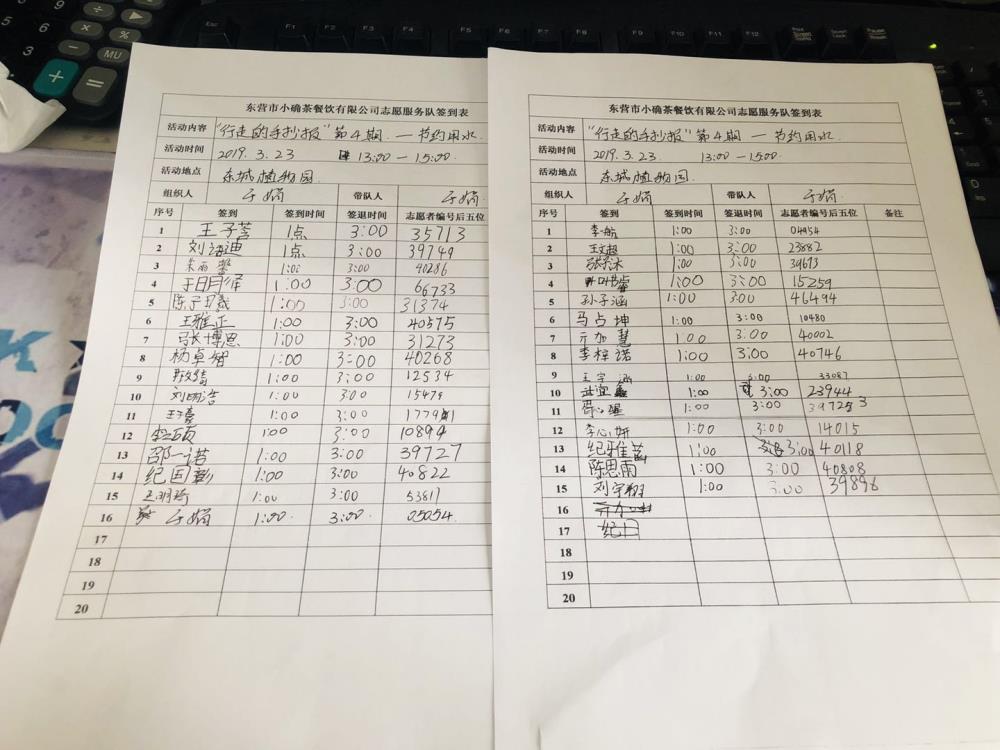 东营市小确茶餐饮有限公司志愿服务队签到表
活动内容 "行走的手抄报"第4期 — 节约用水.
活动时间 2019. 3. 23 13:00 — 15:00.
活动地点 东城植物园.
组织人 于娟 带队人 于娟
序号 签到 签到时间 签退时间 志愿者编号后五位
1 王子菩 1点 3:00 35713
2 刘语迪 1点 3:00 39749
3 朱雨馨 1:00 3:00 40286
4 于玥泽 1:00 3:00 66733
5 陈子曦 1:00 3:00 31374
6 王雅正 1:00 3:00 40575
7 张博思 1:00 3:00 31273
8 杨卓智 1:00 3:00 40268
9 1:00 3:00 12534
10 刘明浩 1:00 3:00 15479
11 1:00 3:00
12 1:00 3:00 10894
13 邵一诺 1:00 3:00 39727
14 纪国彭 1:00 3:00 40822
15 1:00 3:00 53811
16 于娟 1:00. 3:00. 05054.
17
18
19
20
东营市小确茶餐饮有限公司志愿服务队签到表
活动内容 "行走的手抄报"第4期. — 节约用水.
活动时间 2019. 3. 23 13:00 — 15:00.
活动地点 东城植物园.
组织人 于娟 带队人 于娟
序号 签到 签到时间 签退时间 志愿者编号后五位 备注
1 李航 1:00 3:00 04954
2 王文超 1:00 3:00 23882
3 1:00 3:00 39673
4 1:00 3:00 15259
5 孙子涵 1:00 3:00 46494
6 马占坤 1:00 3:00 10480
7 亓加慧 1:00 3:00 40002
8 李梓诺 1:00 3:00 40746
9 王宇涵 1:00 3:00 33087
10 1:00 3:00 23944
11 1:00 3:00
12 李心妍 1:00 3:00 14015
13 纪雅 1:00 3:00 40118
14 陈思雨 1:00 3:00 40808
15 刘宇翔 1:00 3:00 39896
16
17
18
19
20